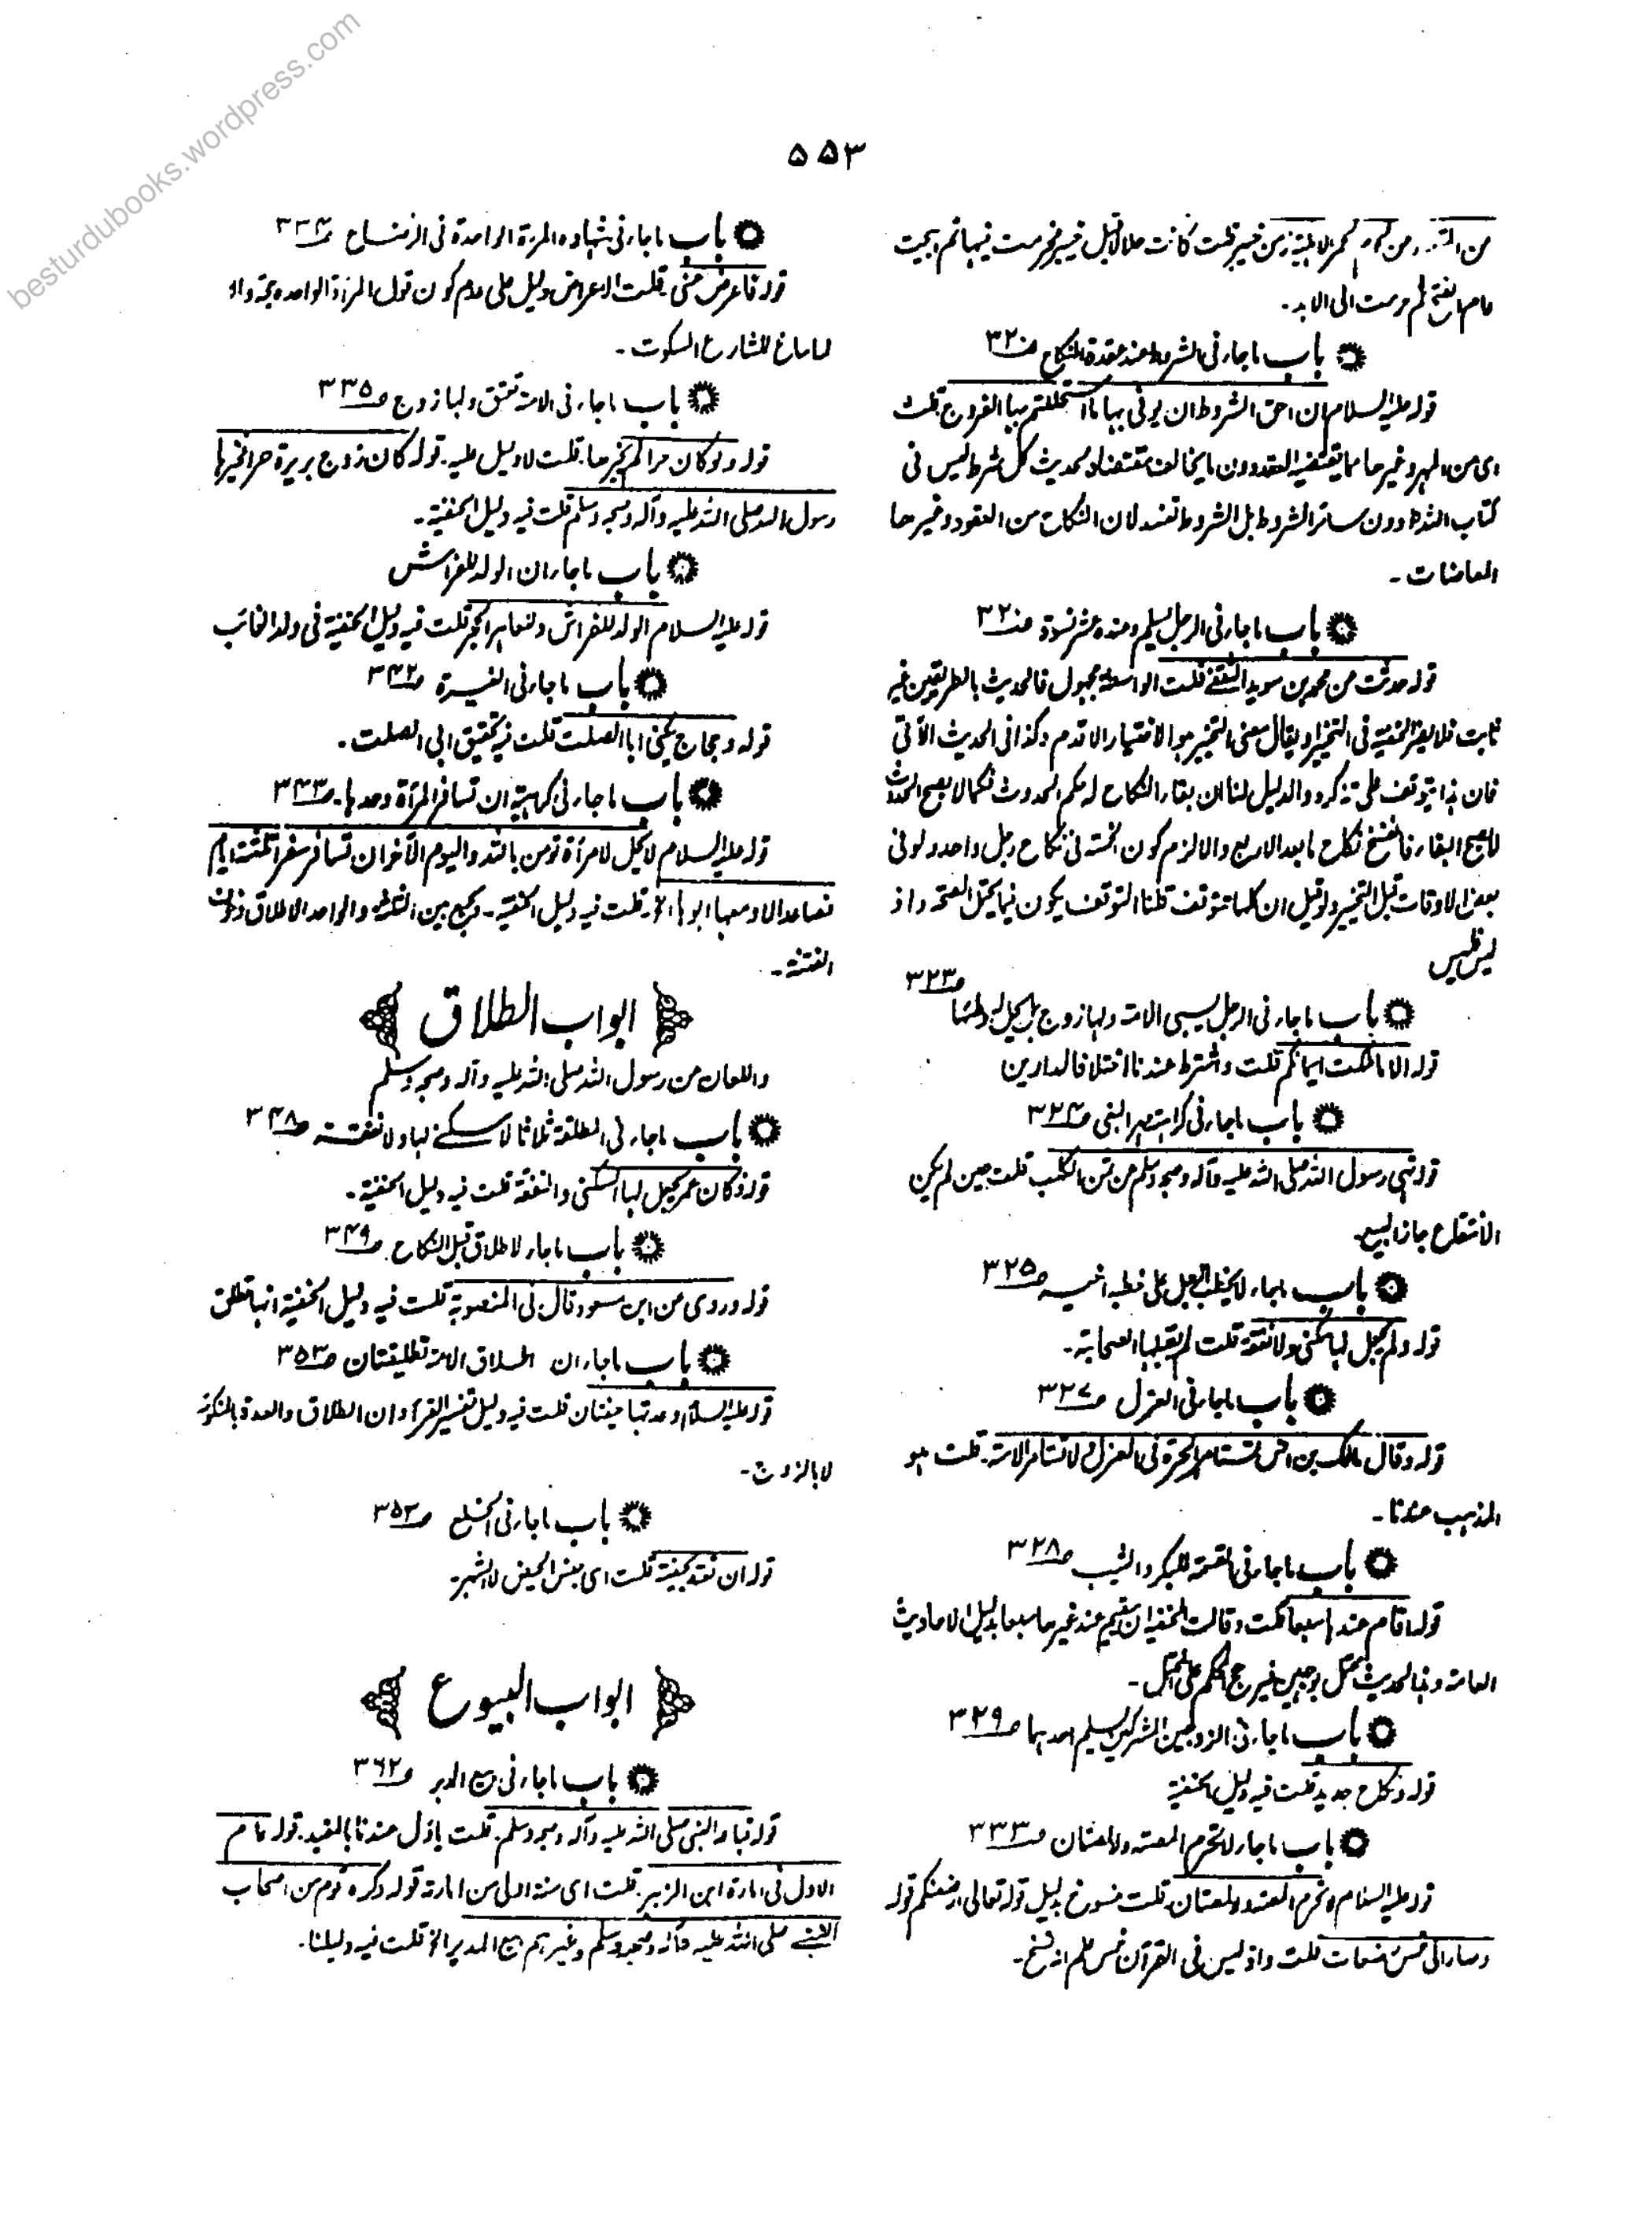 besturdubooks.wordpress.com
۵۵۳
من لحوم الحمر الاهلية زمن خيبر قلت كانت حلالا قبل خيبر فحرمت فيها ثم ابيحت
عام الفتح ثم حرمت الى الابد۔
باب ماجاء فى الشروط عند عقدة النكاح ص۳۲۰
قوله عليه السلام ان احق الشروط ان يوفى بها ما استحللتم بها الفروج قلت
اى من المهر وغيرها مما يقتضيه العقد دون ما يخالف مقتضاه لحديث كل شرط ليس فى
كتاب الله دون سائر الشروط بل الشروط تفسد لان النكاح من العقود وغيرها
المعاضات۔
باب ماجاء فى الرجل يسلم وعنده عشر نسوة ص۳۲۰
قوله حدثت عن محمد بن سويد الثقفى قلت الواسطة مجهول فالحديث بالطريقين غير
ثابت فلا يضر الحنفية فى التخيير او يقال معنى التخيير هو الاختيار الاقدم وكذا فى الحديث الآتى
فان هذا يتوقف على تذكره والدليل لنا ان بقاء النكاح له حكم الحدوث فكما لا يصح الحدوث
لا يصح البقاء فانفسخ نكاح ما بعد الاربع والا لزم كون الخمسة فى نكاح رجل واحد ولو فى
بعض الاوقات قبل التخيير ولو قيل ان كلها تتوقف قلنا التوقف يكون فيما يحتمل الصحة واذ
ليس فليس
باب ماجاء فى الرجل يسبى الامة ولها زوج هل يحل له وطئها ص۳۲۳
قوله الا ما ملكت ايمانكم قلت واشترط عندنا اختلاف الدارين
باب ماجاء فى كراهية مهر البغى ص۳۲۴
قوله نهى رسول الله صلى الله عليه وآله وصحبه وسلم عن ثمن الكلب قلت حين لم يكن
الانتفاع جاز البيع۔
باب ماجاء لا يخطب الرجل على خطبة اخيه ص۳۲۵
قوله ولم يجعل لها سكنى ولا نفقة قلت لم يقبلها الصحابة۔
باب ماجاء فى العزل ص۳۲۷
قوله وقال مالك بن انس تستامر الحرة فى العزل ولا تستامر الامة۔ قلت هو
المذهب عندنا۔
باب ماجاء فى القسمة للبكر والثيب ص۳۲۸
قوله اقام عندها سبعا قلت وقالت الحنفية ان يقيم عند غيرها سبعا بدليل الاحاديث
العامة وهذا الحديث يحتمل وجهين فيرجح الحكم على المحتمل۔
باب ماجاء فى الزوجين المشركين يسلم احدهما ص۳۲۹
قوله ونكاح جديد قلت فيه دليل الحنفية
باب ماجاء لا تحرم المصة ولا المصتان ص۳۳۳
قوله عليه السلام لا تحرم المصة ولا المصتان قلت منسوخ بدليل قوله تعالى ارضعنكم قوله
وصار الى خمس رضعات قلت واذ ليس فى القرآن خمس علم انه نسخ۔
باب ماجاء فى شهادة المرءة الواحدة فى الرضاع ص۳۳۴
قوله فاعرض عنى۔ قلت الاعراض دليل على عدم كون قول المرأة الواحدة حجة والا
لما ساغ للشارع السكوت۔
باب ماجاء فى الامة تعتق ولها زوج ص۳۳۵
قوله ولو كان حرا لم يخيرها۔ قلت لا دليل عليه۔ قوله كان زوج بريرة حرا فخيرها
رسول الله صلى الله عليه وآله وصحبه وسلم قلت فيه دليل الحنفية۔
باب ماجاء ان الولد للفراش
قوله عليه السلام الولد للفراش وللعاهر الحجر قلت فيه دليل الحنفية فى ولد الغائب
باب ماجاء فى الغيرة ص۳۴۲
قوله وحجاج يكنى ابا الصلت قلت فيه تحقيق ابى الصلت۔
باب ماجاء فى كراهية ان تسافر المرأة وحدها۔ ص۳۴۳
قوله عليه السلام لا يحل لامرأة تومن بالله واليوم الآخر ان تسافر سفرا ثلثة ايام
فصاعدا الا ومعها ابوها الخ۔ قلت فيه دليل الحنفية۔ ويجمع بين الثلثة والواحد الاطلاق وخوف
الفتنة۔
ابواب الطلاق
واللعان من رسول الله صلى الله عليه وآله وصحبه وسلم
باب ماجاء فى المطلقة ثلاثا لا سكنى لها ولا نفقة ص۳۴۸
قوله فكان عمر يجعل لها السكنى والنفقة قلت فيه دليل الحنفية۔
باب ماجاء لا طلاق قبل النكاح ص۳۴۹
قوله وروى عن ابن مسعود قال فى المنصوبة قلت فيه دليل الحنفية انها تطلق
باب ماجاء ان طلاق الامة تطليقتان ص۳۵۳
قوله عليه السلام وعدتها حيضتان قلت فيه دليل تفسير القرء وان الطلاق والعدة بالمنكوحة
لا بالزوج۔
باب ماجاء فى الخلع ص۳۵۳
قوله ان تعتد بحيضة قلت اى بجنس الحيض لا بالشهر۔
ابواب البيوع
باب ماجاء فى بيع المدبر ص۳۶۲
قوله فباعه النبى صلى الله عليه وآله وصحبه وسلم۔ قلت ياول عندنا بالمقيد۔ قوله عام
الاول فى امارة ابن الزبير۔ قلت اى سنة اولى من امارته قوله وكره قوم من اصحاب
النبى صلى الله عليه وآله وصحبه وسلم وغيرهم بيع المدبر الخ قلت فيه دليلنا۔